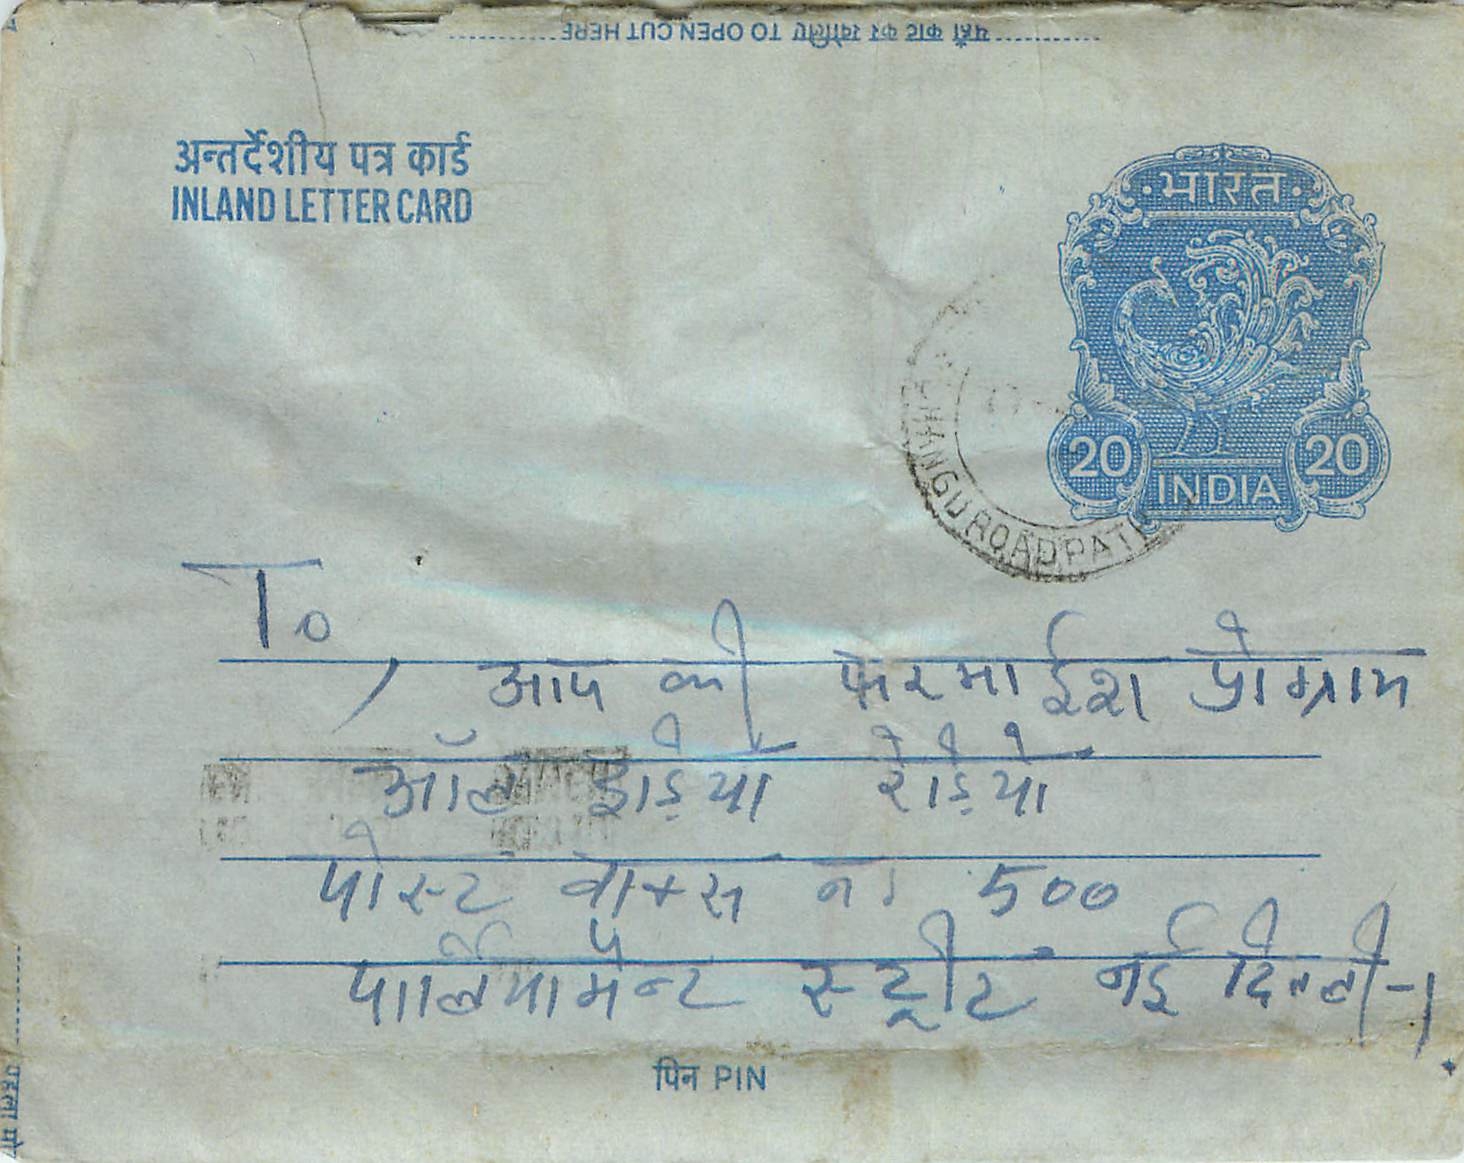 यहाँ काट कर खोलिए TO OPEN CUT HERE
अन्तर्देशीय पत्र कार्ड
INLAND LETTER CARD
भारत
20 20
INDIA
ROAD PAT
To,
आप की फरमाईश प्रोग्राम
ऑल इंडिया रेडियो
पोस्ट बाक्स नं 500
पार्लियामेन्ट स्ट्रीट नई दिल्ली-1
पिन PIN